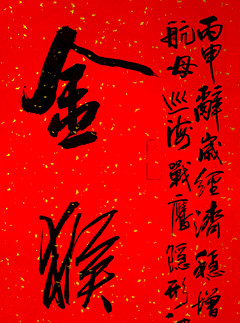 丙申辭歲經濟穩增
航母巡海戰鷹隱形
金猴